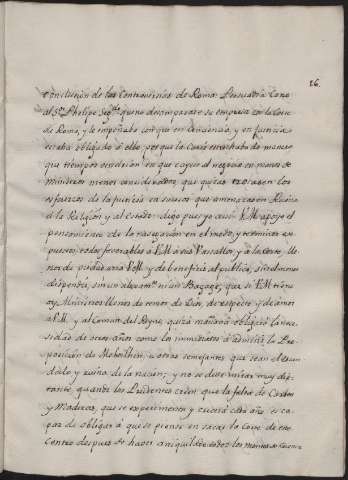 26.
Conclusion de las Controversias de Roma Persuadia Cano
al S.or Phelipe Seg.do que no desamparase su empresa con la Corte
de Roma, y le empeñaba con que en Conciencia, y en justicia
estaba obligado á ello porque la Curia estrechaba de manera
que tiempos vendrian en que cayese el negocio en manos de
Ministros menos considerados que quizas usasen los
esfuerzos de la justicia en sucesos que amenazasen Ruina
á la Religion y al estado: digo pues yo assi V.M. apoye el
pensamiento de la navegacion en el modo, y terminos ex
puestos, todos favorables á V.M. á sus Vasallos, y á la Corte, lle
nos de piedad en V.M. y de beneficio al publico, sin el menor
dispendio, sin un ni un Bagage, que si V.M. tiene
oy Ministros llenos de temor de Dios, de respeto, y de amor
á V.M. y al Comun del Reyno, quizá mañana obligará la nece
sidad de otros años como los immediatos á admitir la Pro
posicion de y otras semejantes que sean el escan
dalo y ruina de la nacion; y no se debe mirar muy dis
tante, quando los Prudentes creen que la falta de Carbon
y Maderas, que se experimenta y crecerá cada año es ca
paz de obligar á que se piense en sacar la Corte de este
Centro despues de haver aniquilado todos los montes de